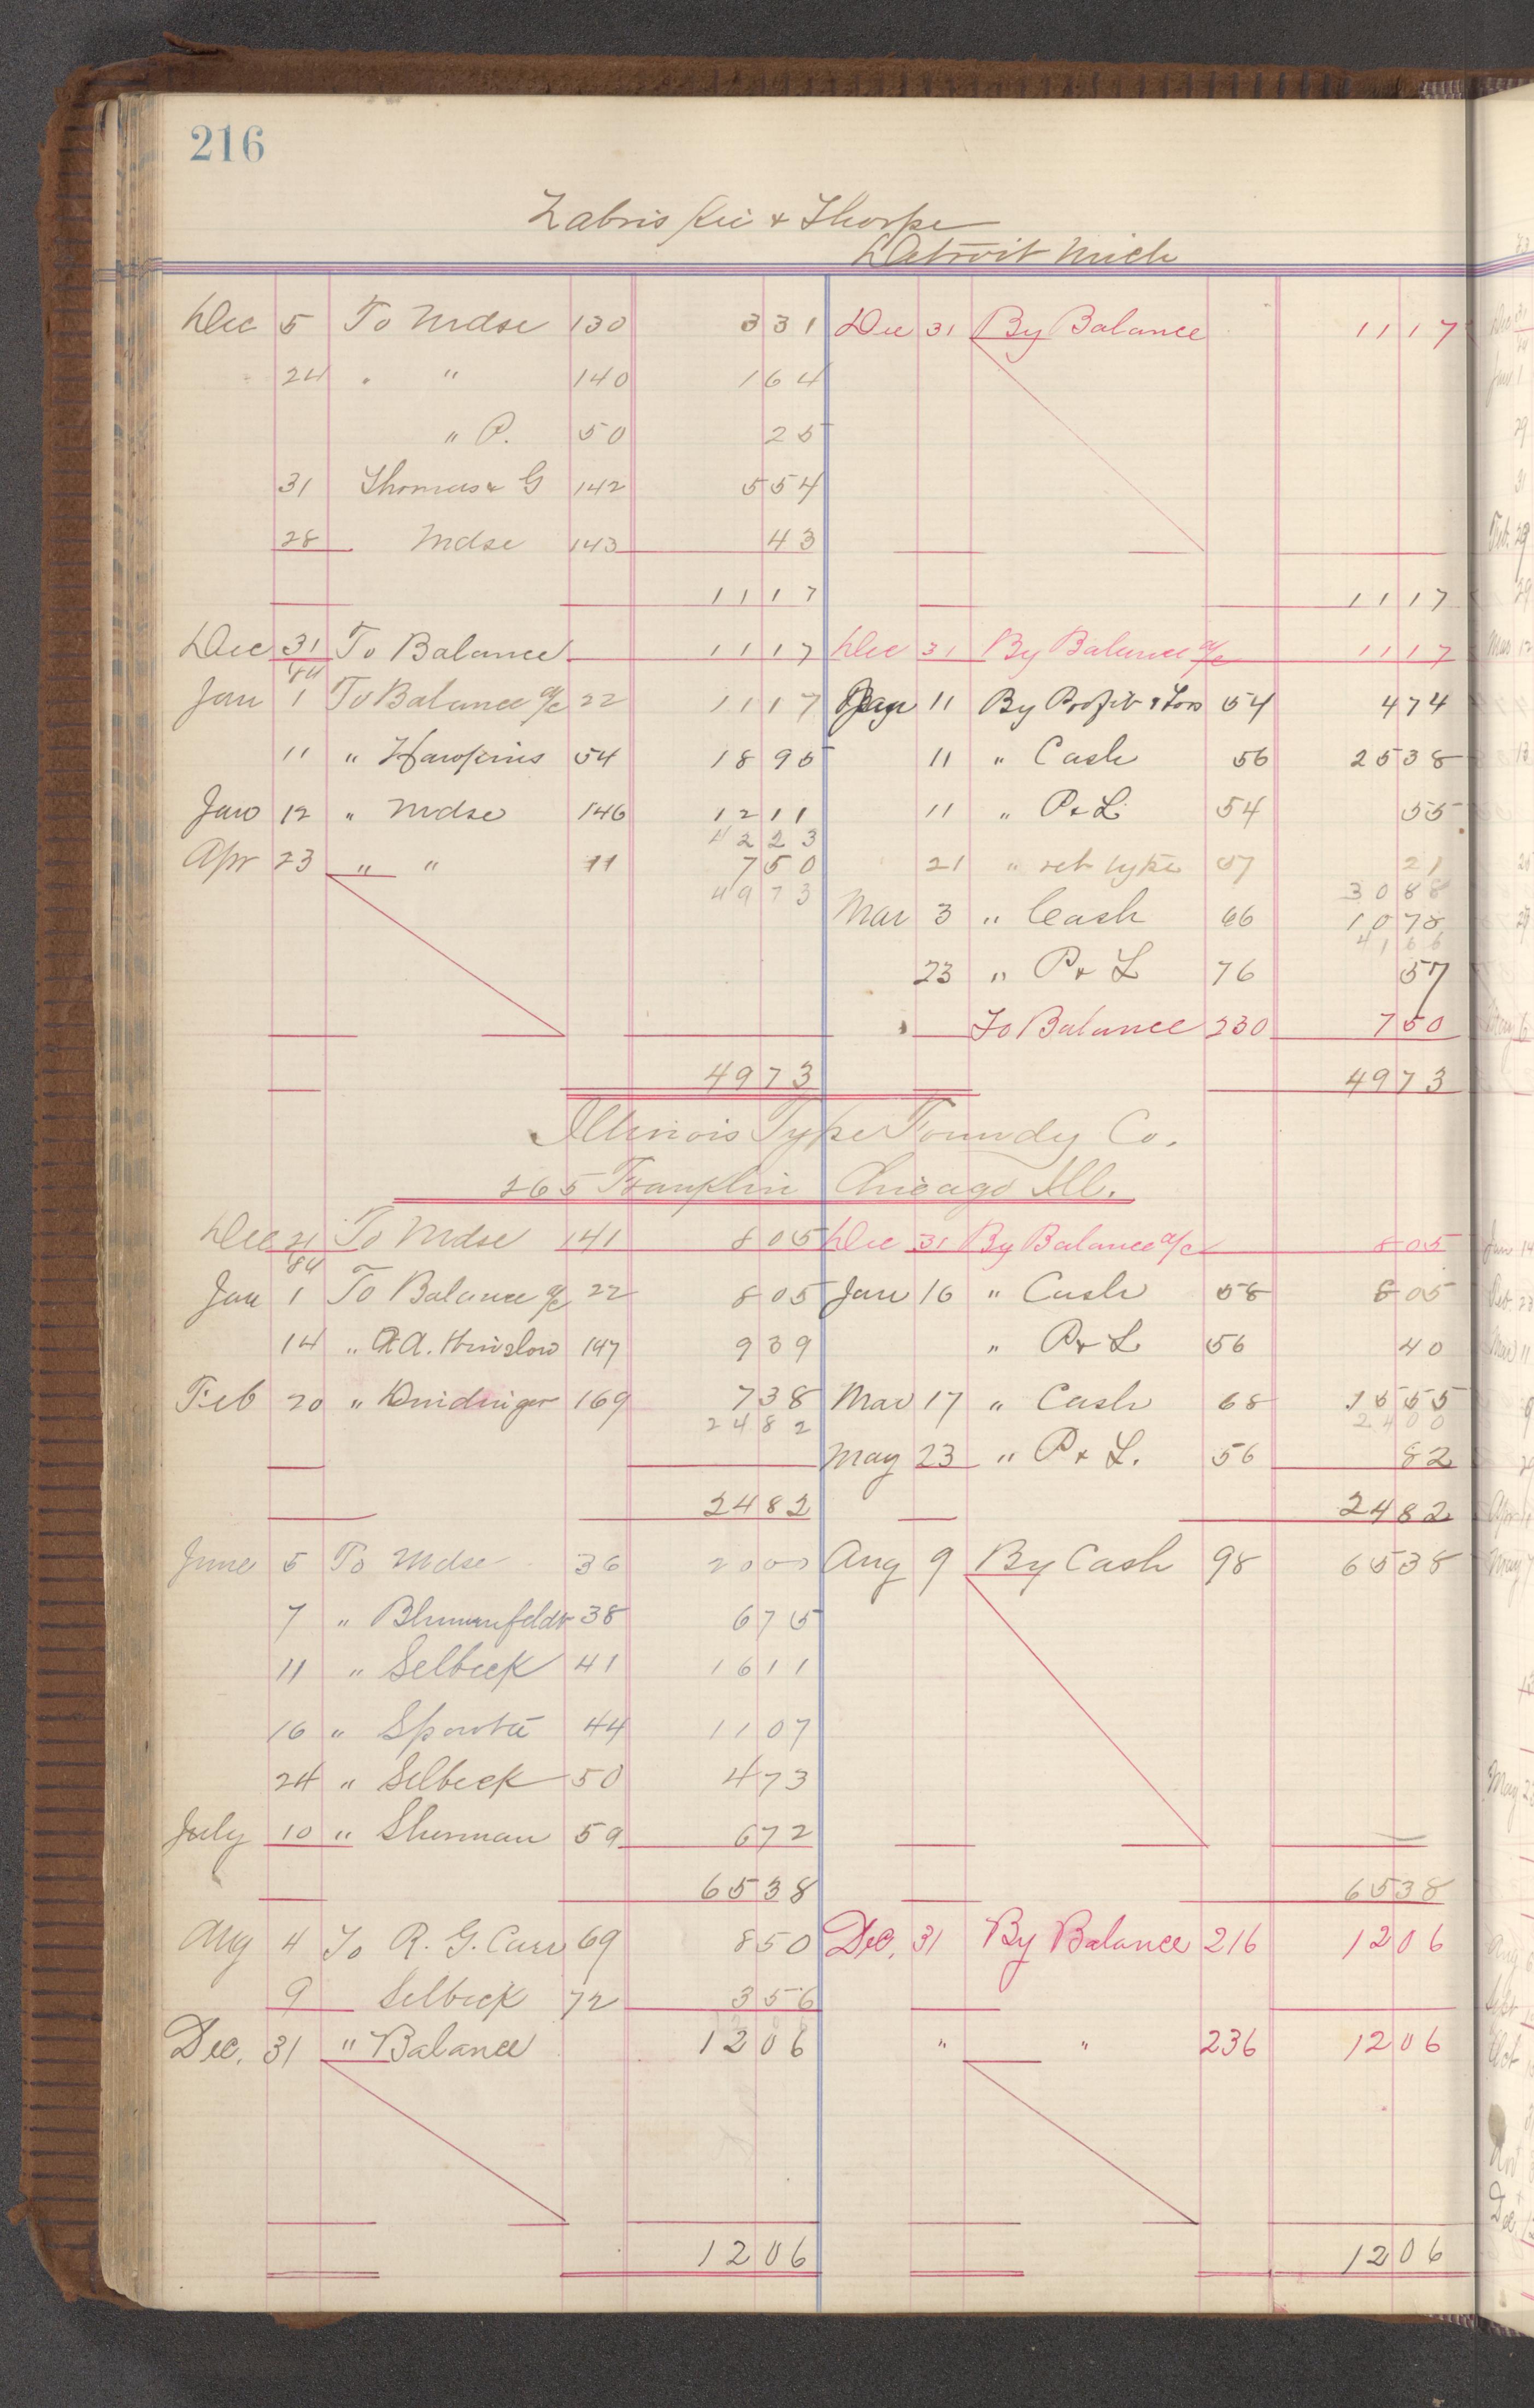 216
Zabriskie & Thorpe
Detroit Mich
Dec 5 To Mdse 130 331 Dec 31 By Balance 1117
24 " " 140 164
" P. 50 25
31 Thomas & G 142 554
28 Mdse 143 43
1117 1117
Dec 31 To Balance 1117 Dec 31 By Balance a/c 1117
84
Jan 1 To Balance a/c 22 1117 Jan 11 By Profit & Loss 54 474
11 " Hawkins 54 1895 11 " Cash 56 2538
Jan 12 " Mdse 146 1211 11 " P & L 54 55
4223
Apr 23 " " 11 750 21 " ret type 57 21
4973 3088
Mar 3 " Cash 66 1078
4166
23 " P & L 76 57
To Balance 230 750
4973 4973
Illinois Type Foundry Co.
265 Franklin Chicago Ill.
Dec 21 To Mdse 141 805 Dec 31 By Balance a/c 805
84
Jan 1 To Balance a/c 22 805 Jan 16 " Cash 58 805
14 " A. Winslow 147 939 " P & L 56 40
Feb 20 " 169 738 Mar 17 " Cash 68 1555
2482 2400
May 23 " P & L. 56 82
2482 2482
June 5 To Mdse 36 2000 Aug 9 By Cash 98 6538
7 " 38 675
11 " Selbeck 41 1611
16 " 44 1107
24 " Selbeck 50 473
July 10 " Sherman 59 672
6538 6538
Aug 4 To R. G. Carr 69 850 Dec. 31 By Balance 216 1206
9 Selbeck 72 356
Dec. 31 " Balance 1206 " " 236 1206
1206 1206